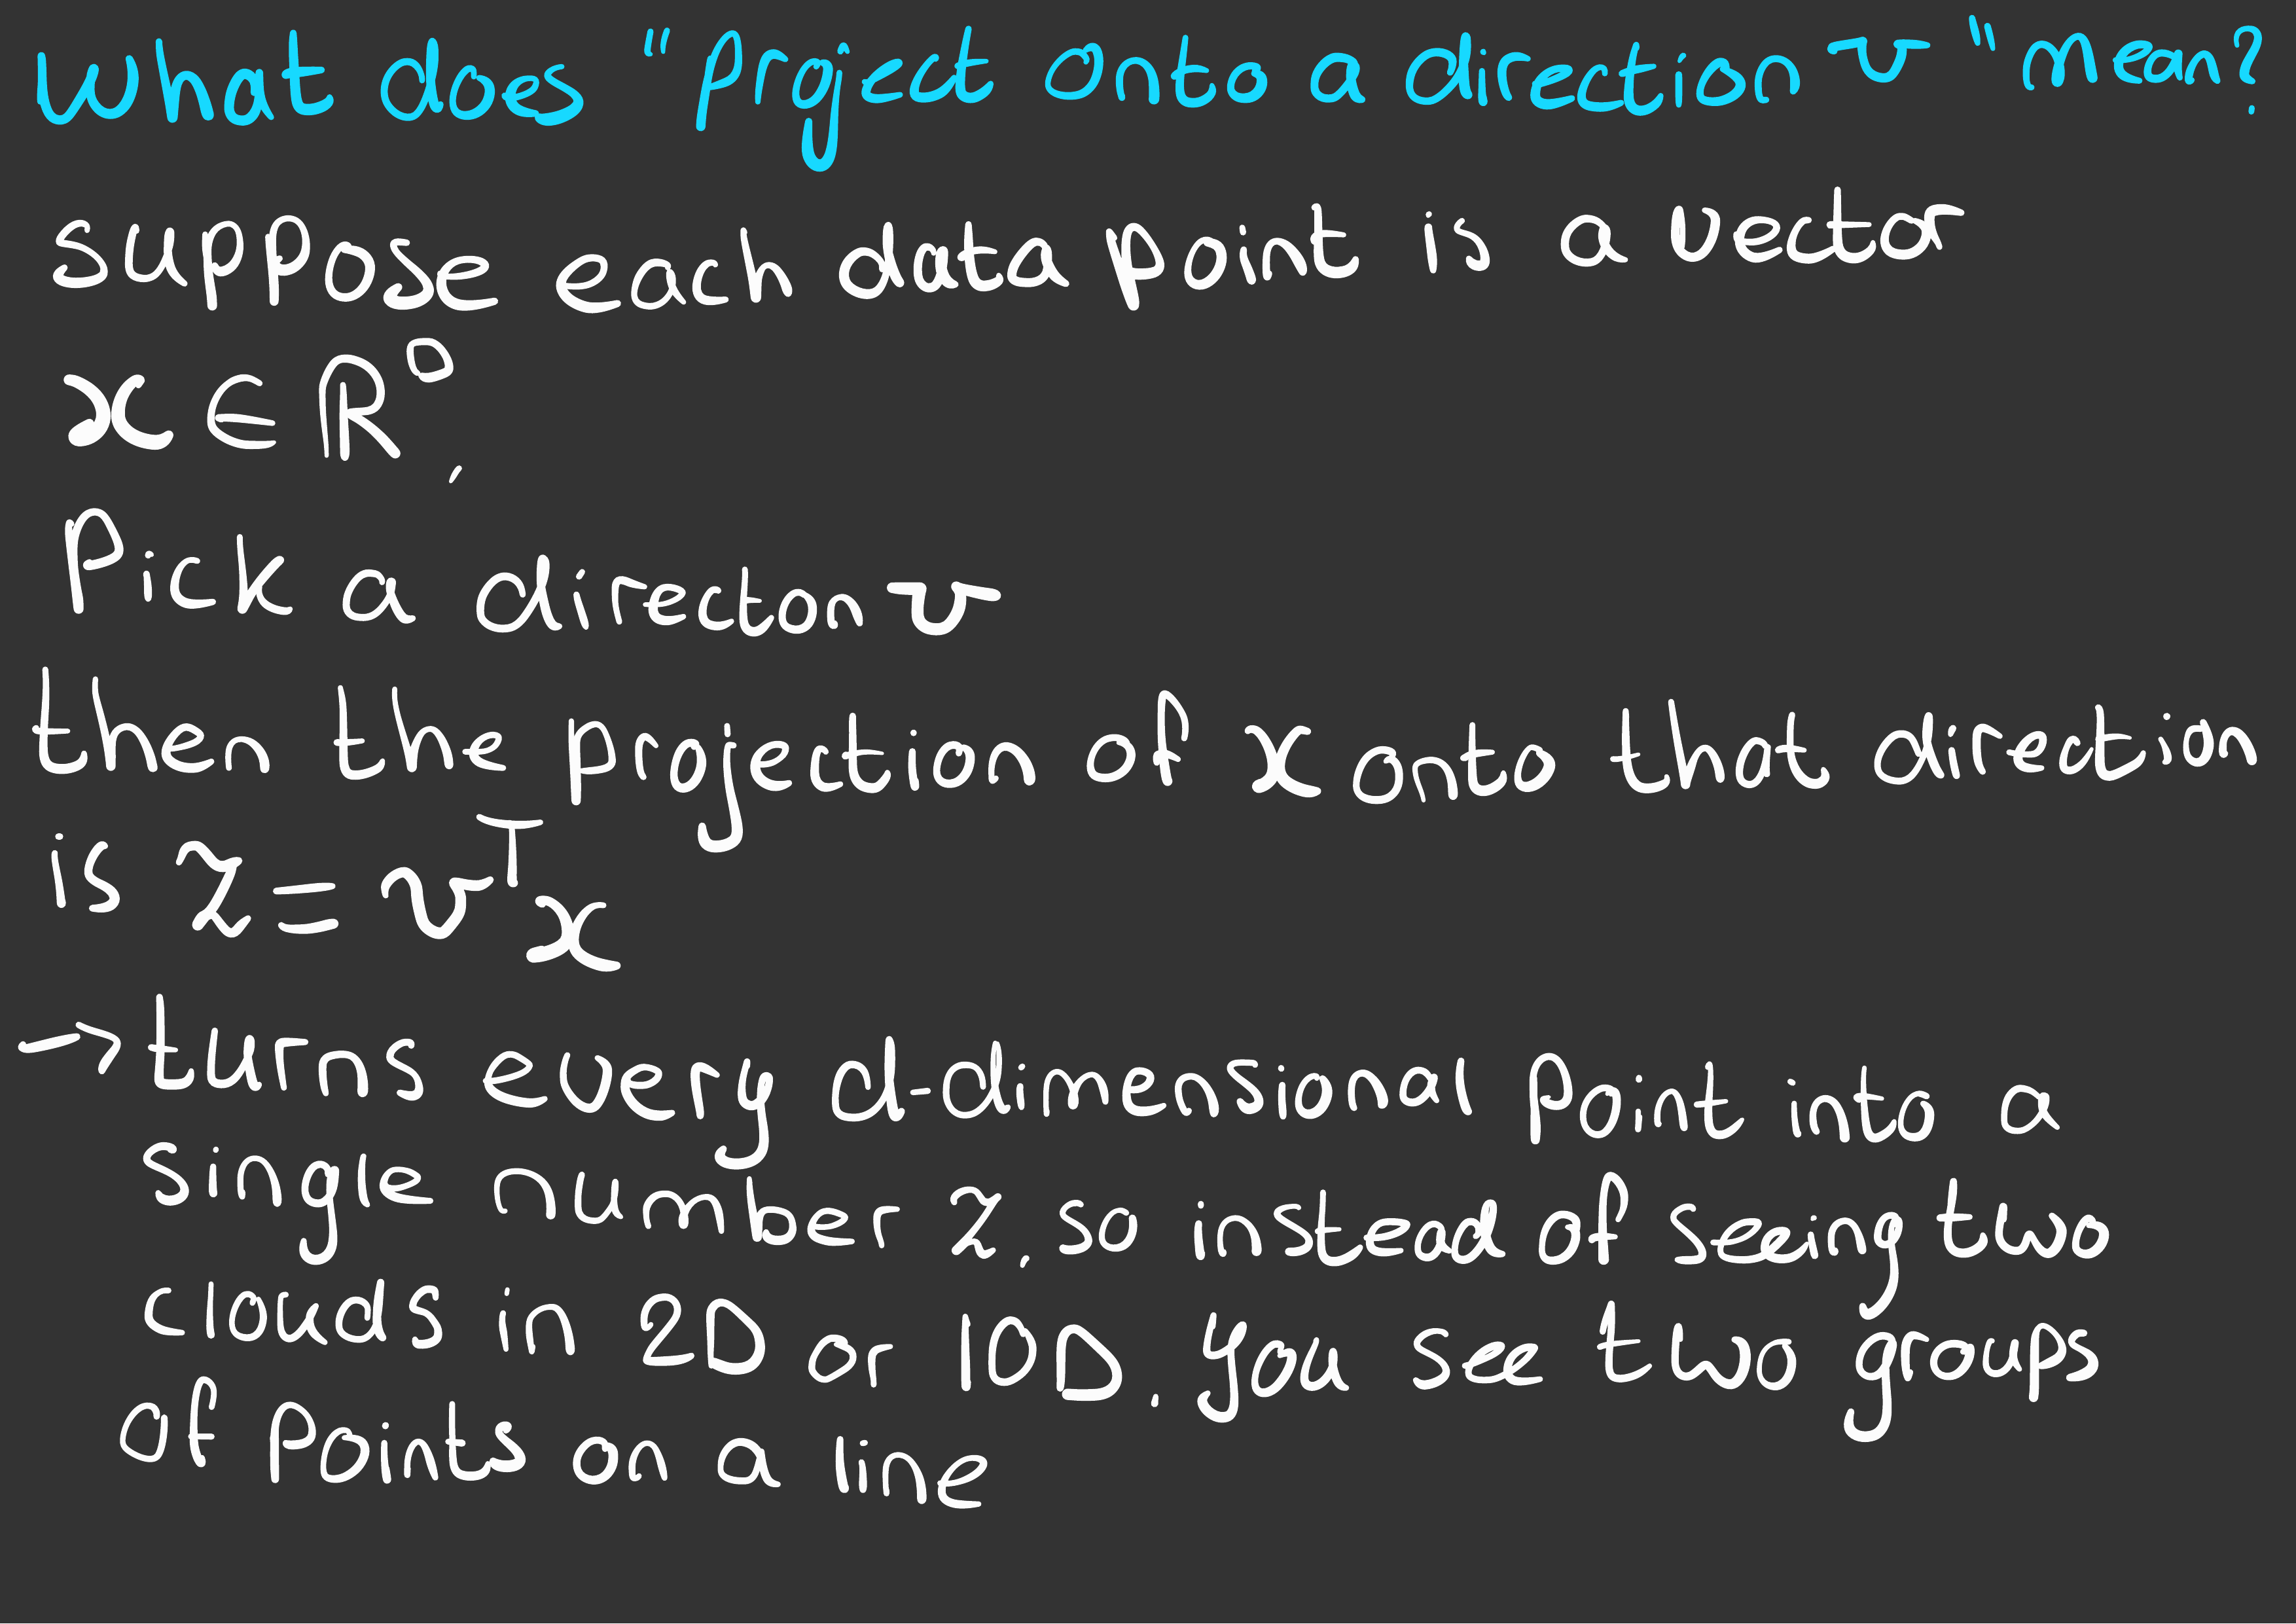 What does "Project onto a direction v" mean?
Suppose each data point is a vector
x ∈ R^D,
Pick a directon v
then the projection of x onto that direction
is z = v^T x
→ turns every d-dimensional point into a
single number z, so instead of seeing two
clouds in 2D or 10D, you see two groups
of points on a line